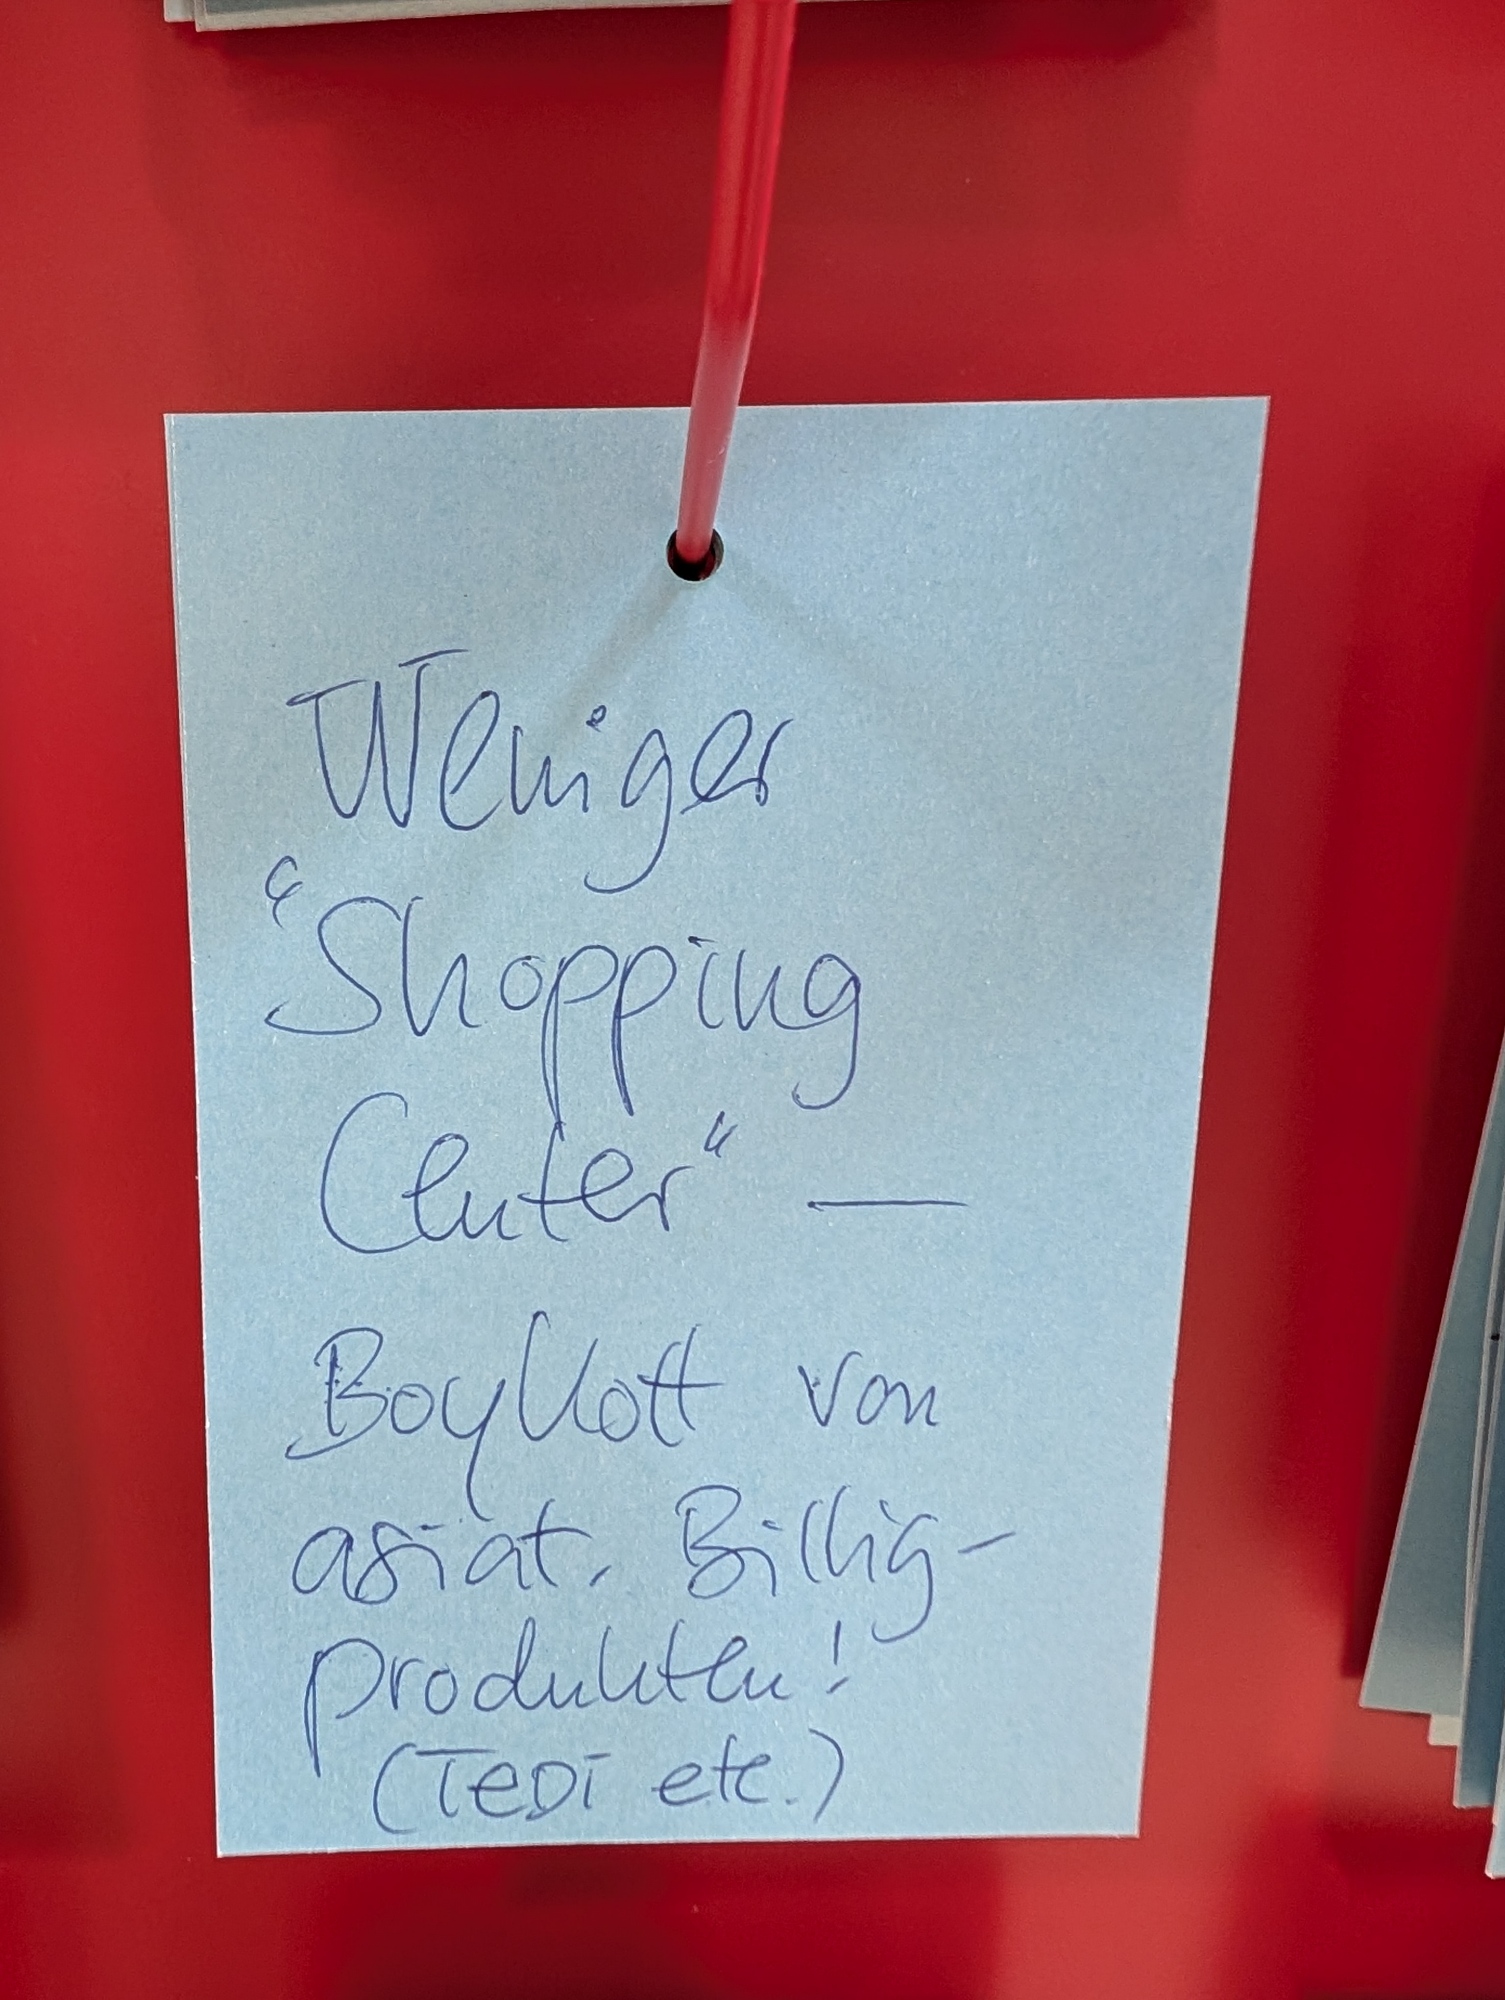 Weniger
"Shopping
Center" —
Boykott von
asiat. Billig-
produkten!
(TEDI etc.)